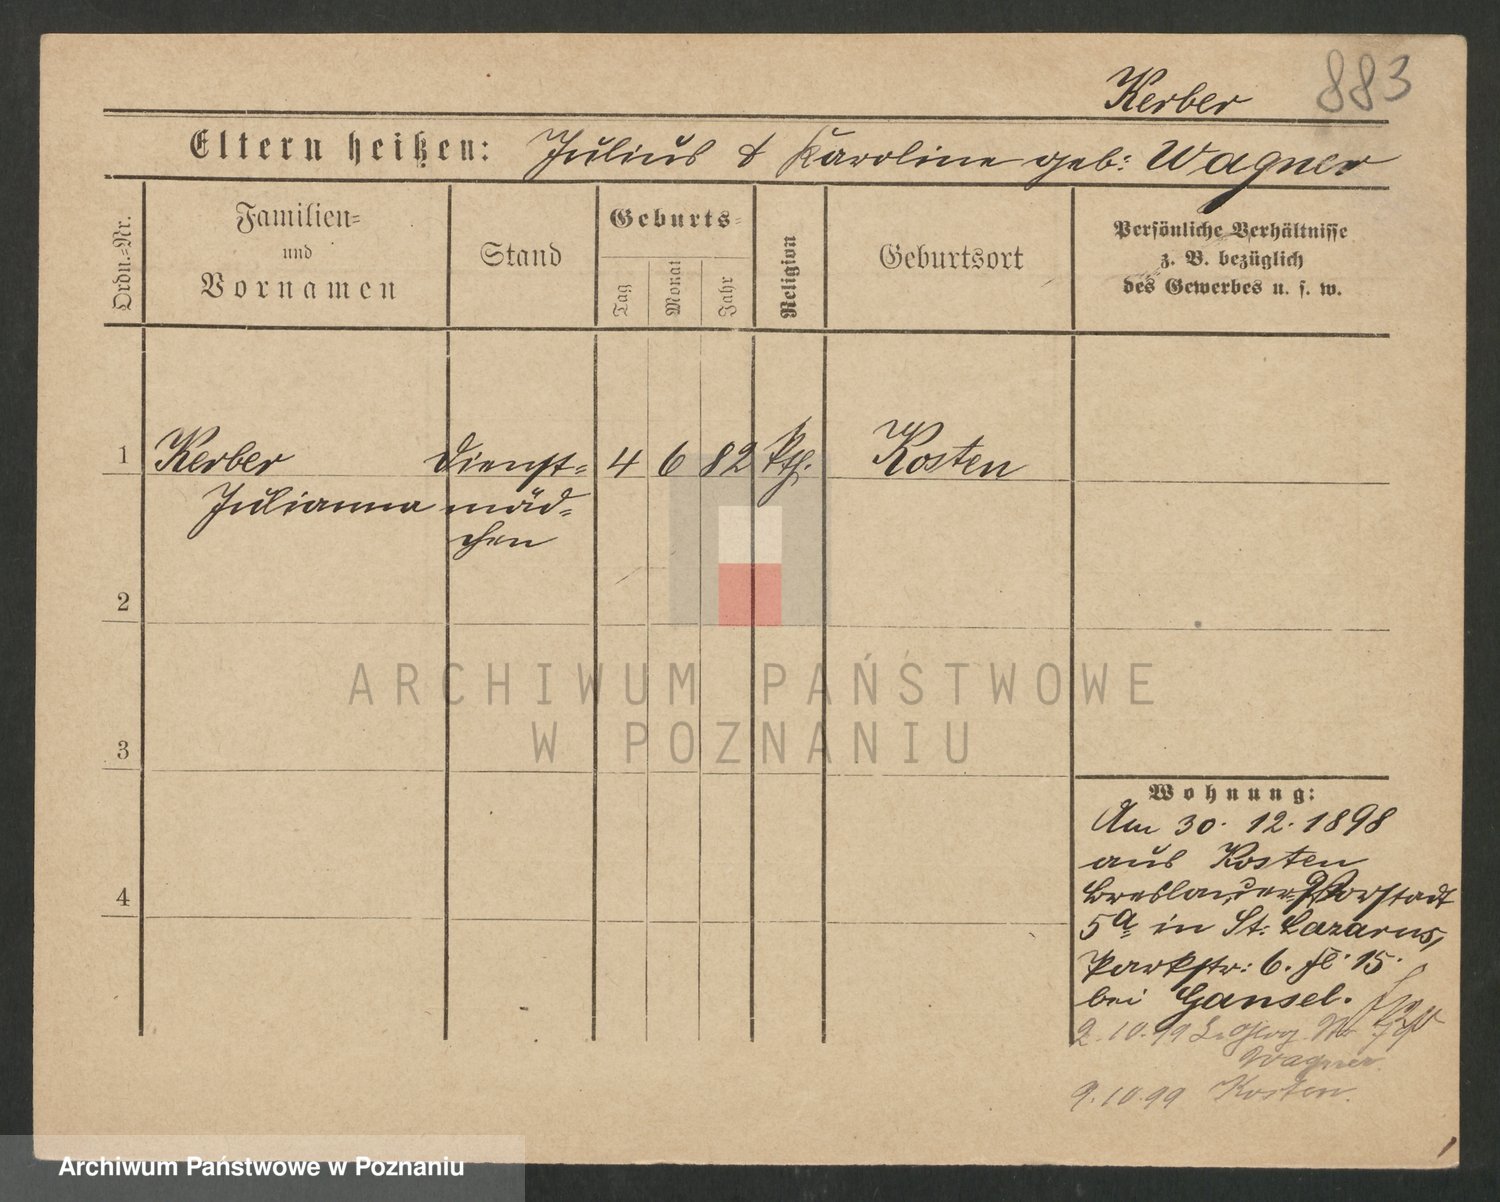 883
Kerber
Eltern heißen: Julius & Karoline geb: Wagner
Ordn.=Nr.
Familien=
und
Vornamen
Stand
Geburts=
Tag
Monat
Jahr
Religion
Geburtsort
Persönliche Verhältnisse
z. B. bezüglich
des Gewerbes u. s. w.
1 Kerber Dienst= 4 6 82 kth. Kosten
Julianna mäd=
chen
2
3
4
ARCHIWUM PAŃSTWOWE
W POZNANIU
Wohnung:
Am 30. 12. 1898
aus Kosten
Breslauer Vorstadt
5a in St: Lazarus,
Parkstr: 6. fl. 15.
bei Gansel.
2.10.99
Wagner.
9.10.99 Kosten.
Archiwum Państwowe w Poznaniu